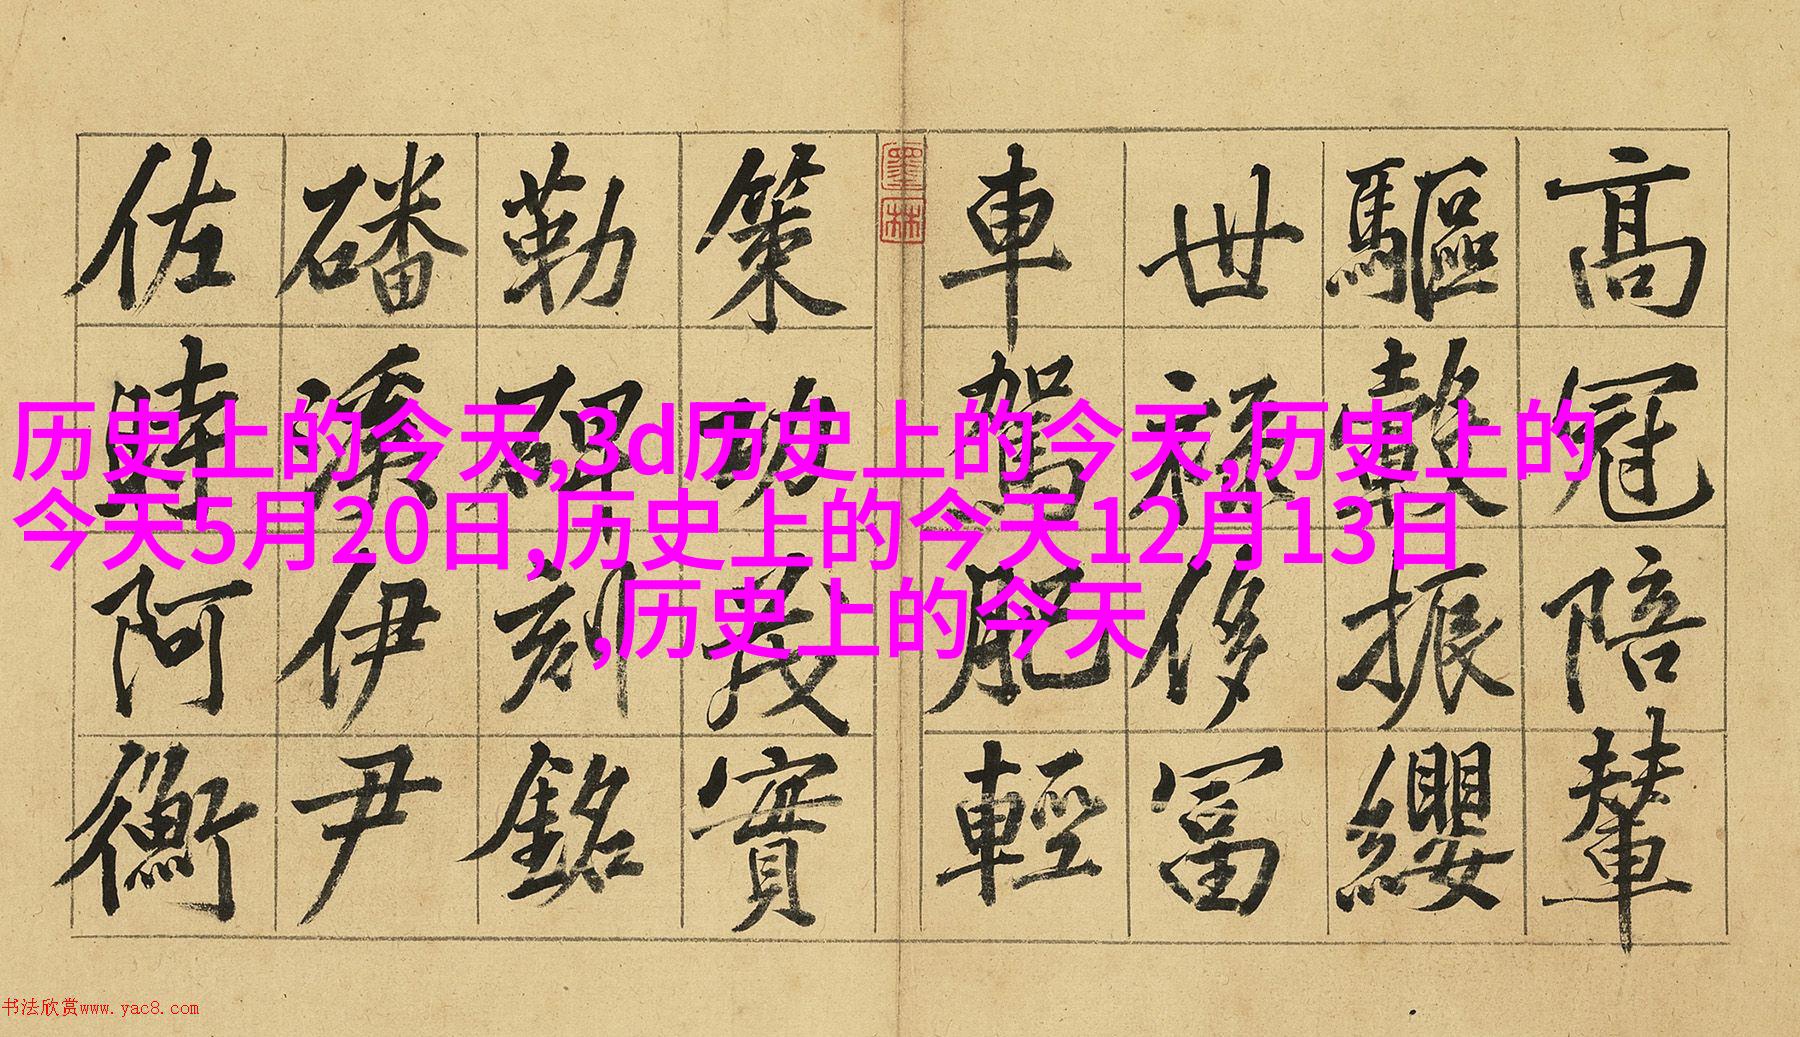 高冠陪輦
驅轂振纓
世祿侈富
車駕肥輕
策功茂實
勒碑刻銘
磻溪伊尹
佐時阿衡
墨林
历史上的今天,3d历史上的今天,历史上的
今天5月20日,历史上的今天12月13日
,历史上的今天
书法欣赏www.yac8.com